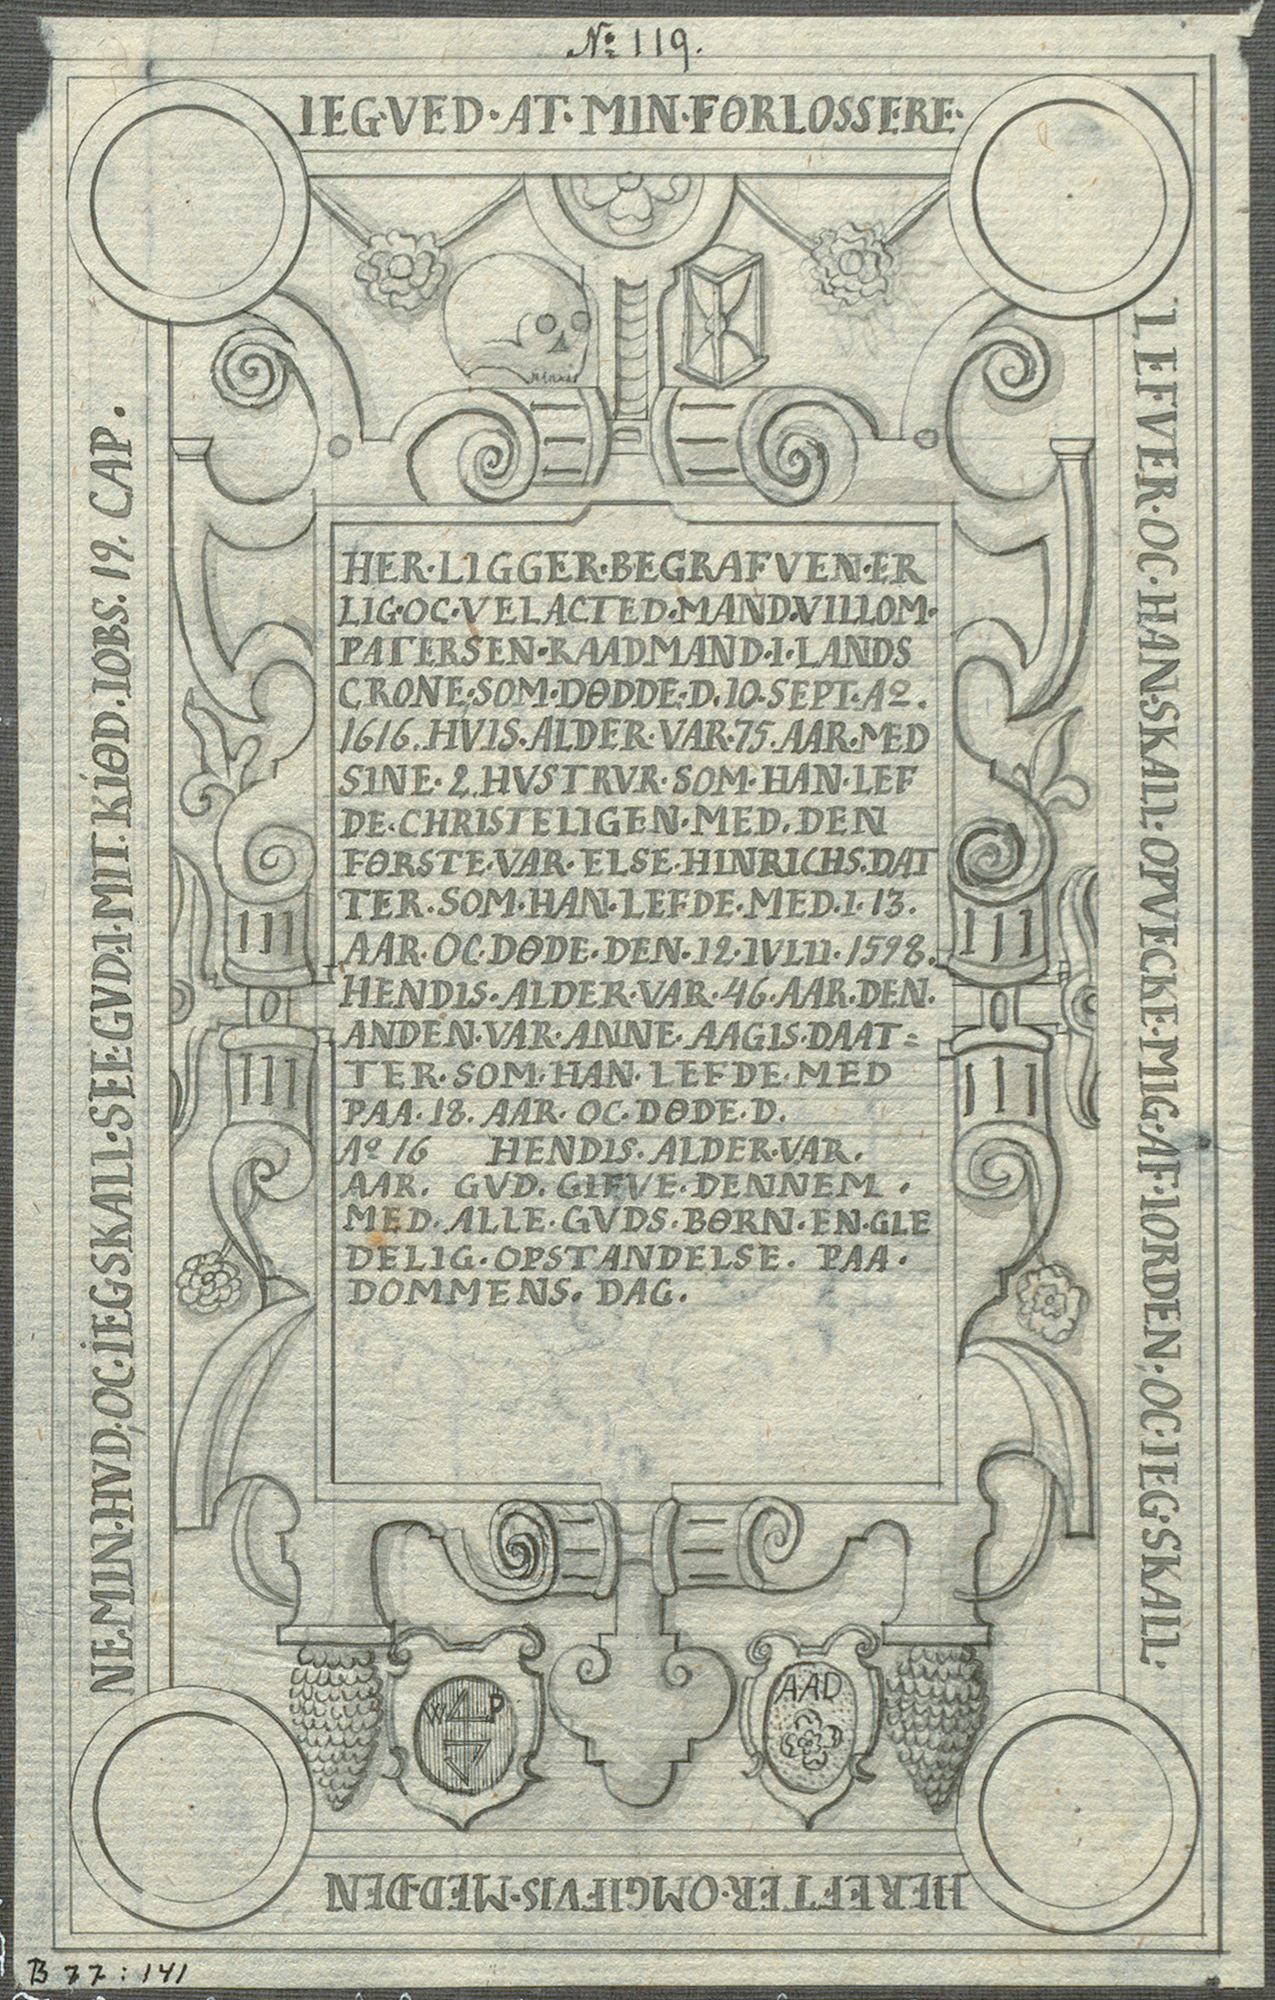 No 119.
IEG·VED·AT·MIN·FØRLOSSERE·
LEFVER·OC·HAN·SKALL·OPVECKE·MIG·AF·IORDEN,·OC·IEG·SKALL·
HEREFTER·OMGIFVIS·MED·DEN
NE·MIN·HVD,·OC·IEG·SKALL·SEE·GVD·I·MIT·KIØD. IOBS. 19. CAP.
HER·LIGGER·BEGRAFVEN·ER
LIG·OC·VELACTED·MAND·VILLOM·
PATERSEN·RAADMAND·I·LANDS
CRONE·SOM·DØDDE·D.10·SEPT·Ao.
1616.HVIS·ALDER·VAR·75.AAR·MED
SINE·2.HVSTRVR·SOM·HAN·LEF
DE·CHRISTELIGEN·MED.DEN
FØRSTE·VAR·ELSE·HINRICHS·DAT
TER·SOM·HAN·LEFDE·MED·I·13.
AAR·OC·DØDE·DEN·12·IVLII·1598.
HENDIS·ALDER·VAR·46·AAR·DEN.
ANDEN·VAR·ANNE·AAGIS·DAAT=
TER·SOM·HAN·LEFDE·MED
PAA·18. AAR· OC·DØDE·D.
Ao 16 HENDIS·ALDER·VAR.
AAR. GVD. GIFVE·DENNEM.
MED·ALLE·GVDS·BØRN·EN·GLE
DELIG·OPSTANDELSE. PAA.
DOMMENS. DAG.
W P
AAD
B 77:141